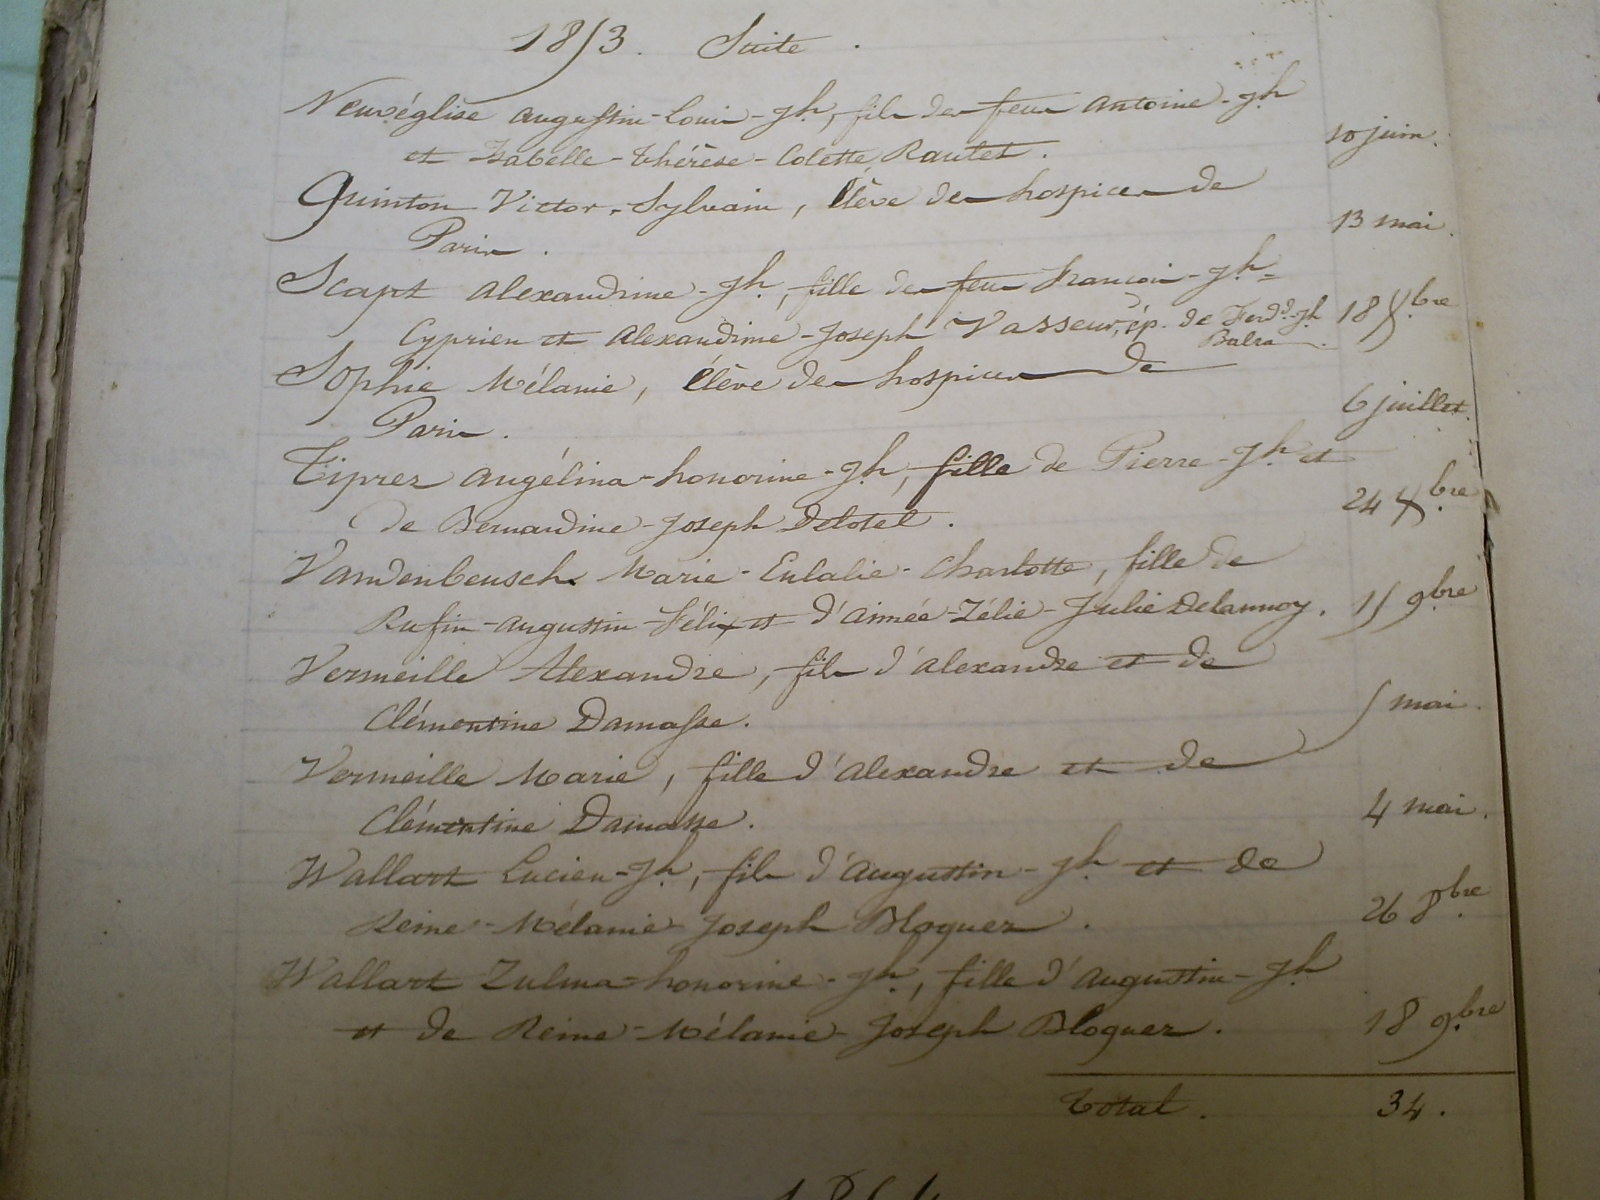 1853. Suite.
Neuvéglise Augustin-Louis-Jh, fils de feu Antoine-Jh
et Isabelle-Thérèse-Colette Rautet. 10 juin.
Quinton Victor-Sylvain, Elève des hospices de
Paris. 13 mai.
Scapt Alexandrine-Jh, fille de feu François-Jh-
Cyprien et Alexandrine-Joseph Vasseur, ép. de Ferdd-Jh Balza. 18 Xbre
Sophie Mélanie, Elève des hospices de
Paris. 6 juillet.
Tiprez Angélina-honorine-Jh, fille de Pierre-Jh et
de Bernardine-Joseph Delosel. 24 Xbre
Vandenbeusch Marie-Eulalie-Charlotte, fille de
Rufin-Augustin-Félix et d'Aimée-Zélie-Julie Delannoy. 15 9bre
Vermeille Alexandre, fils d'Alexandre et de
Clémentine Damasse. 5 mai.
Vermeille Marie, fille d'Alexandre et de
Clémentine Damasse. 4 mai.
Wallart Lucien-Jh, fils d'Augustin-Jh et de
Reine-Mélanie-Joseph Bloquez. 26 8bre
Wallart Zulma-honorine-Jh, fille d'Augustin-Jh
et de Reine-Mélanie-Joseph Bloquez. 18 9bre
Total. 34.